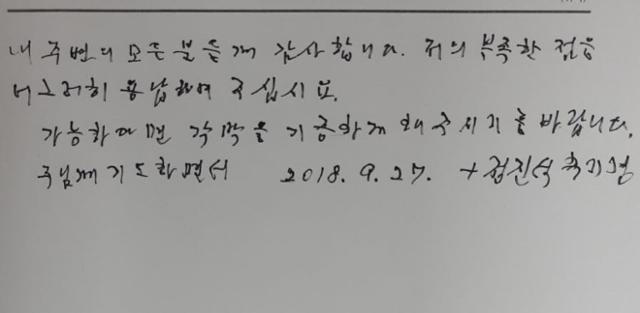 내 주변의 모든 분들께 감사합니다. 저의 부족한 점을
너그러히 용납하여 주십시요.
가능하다면 각막을 기증하게 해주시기를 바랍니다.
주님께 기도하면서 2018. 9. 27. +정진석 추기경